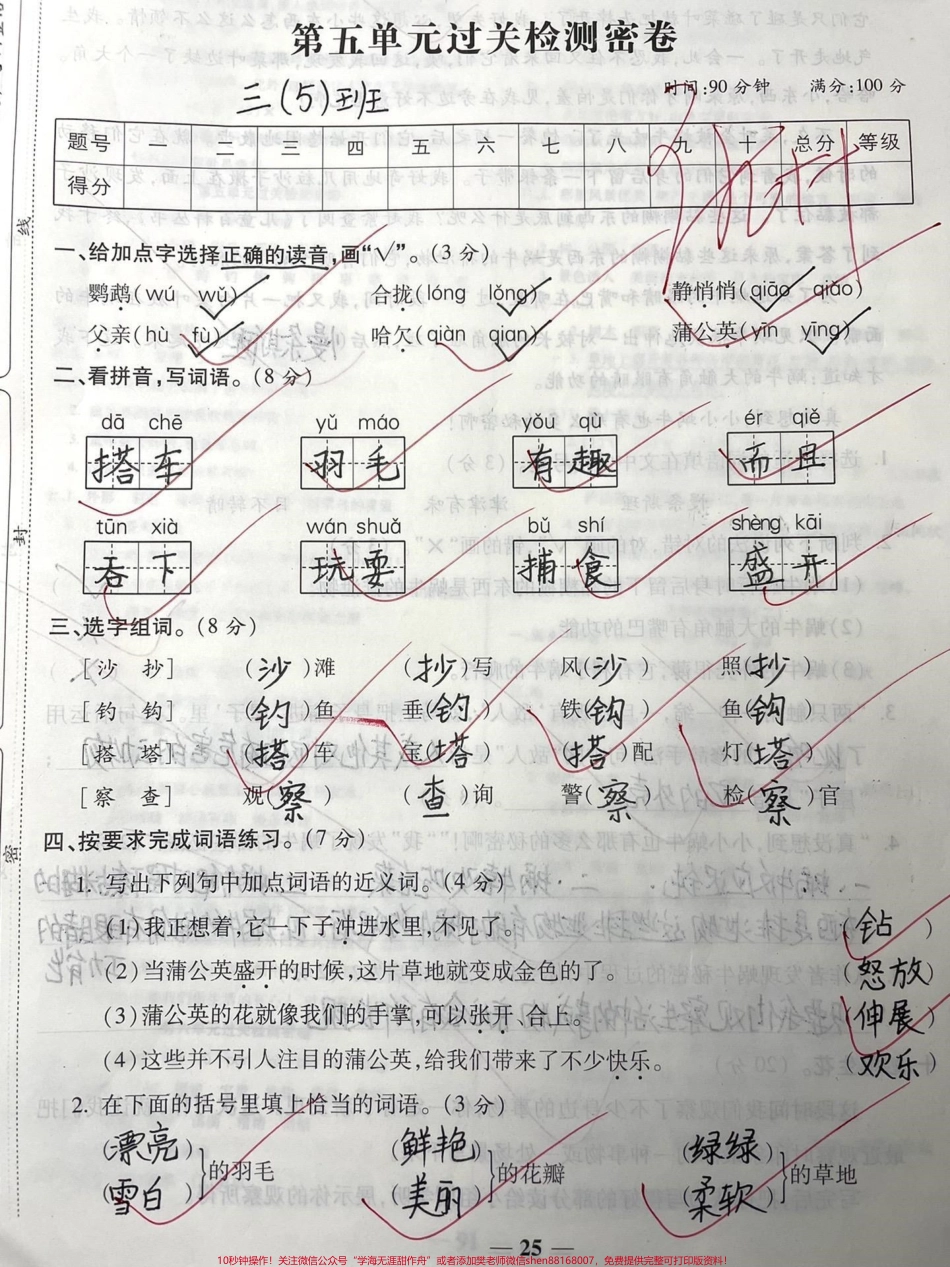 第五单元过关检测密卷
时间:90分钟 满分:100分
三(5)班
题号 一 二 三 四 五 六 七 八 九 十 总分 等级
得分
一、给加点字选择正确的读音,画“√”。(3分)
鹦鹉(wú wǔ) 合拢(lóng lǒng) 静悄悄(qiāo qiǎo)
父亲(hù fù) 哈欠(qiàn qian) 蒲公英(yīn yīng)
二、看拼音,写词语。(8分)
dā chē yǔ máo yǒu qù ér qiě
搭车 羽毛 有趣 而且
tūn xià wán shuǎ bǔ shí shèng kāi
吞下 玩耍 捕食 盛开
三、选字组词。(8分)
[沙 抄] (沙)滩 (抄)写 风(沙) 照(抄)
[钓 钩] (钓)鱼 垂(钓) 铁(钩) 鱼(钩)
[搭 塔] (搭)车 宝(塔) (搭)配 灯(塔)
[察 查] 观(察) (查)询 警(察) 检(察)官
四、按要求完成词语练习。(7分)
1. 写出下列句中加点词语的近义词。(4分)
(1)我正想着,它一下子冲进水里,不见了。 (钻)
(2)当蒲公英盛开的时候,这片草地就变成金色的了。 (怒放)
(3)蒲公英的花就像我们的手掌,可以张开、合上。 (伸展)
(4)这些并不引人注目的蒲公英,给我们带来了不少快乐。 (欢乐)
2. 在下面的括号里填上恰当的词语。(3分)
(漂亮) (鲜艳) (绿绿)
}的羽毛 }的花瓣 }的草地
(雪白) (美丽) (柔软)
— 25 —
10秒钟操作!关注微信公众号“学海无涯甜作舟”或者添加樊老师微信shen88168007,免费提供完整可打印版资料!
线
封
密